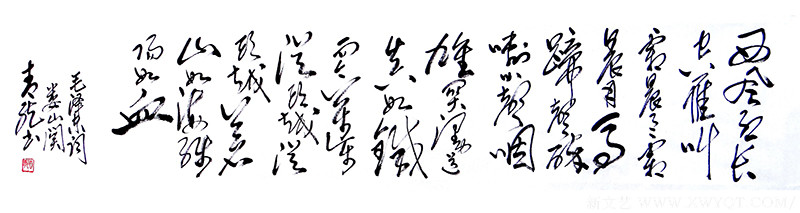 西风烈长
空雁叫
霜晨月霜
晨月马
蹄声碎
喇叭声咽
雄关漫道
真如铁
而今迈步
从头越从
头越苍
山如海残
阳如血
毛泽东词
娄山关
书
WWW.XWYCT.COM/